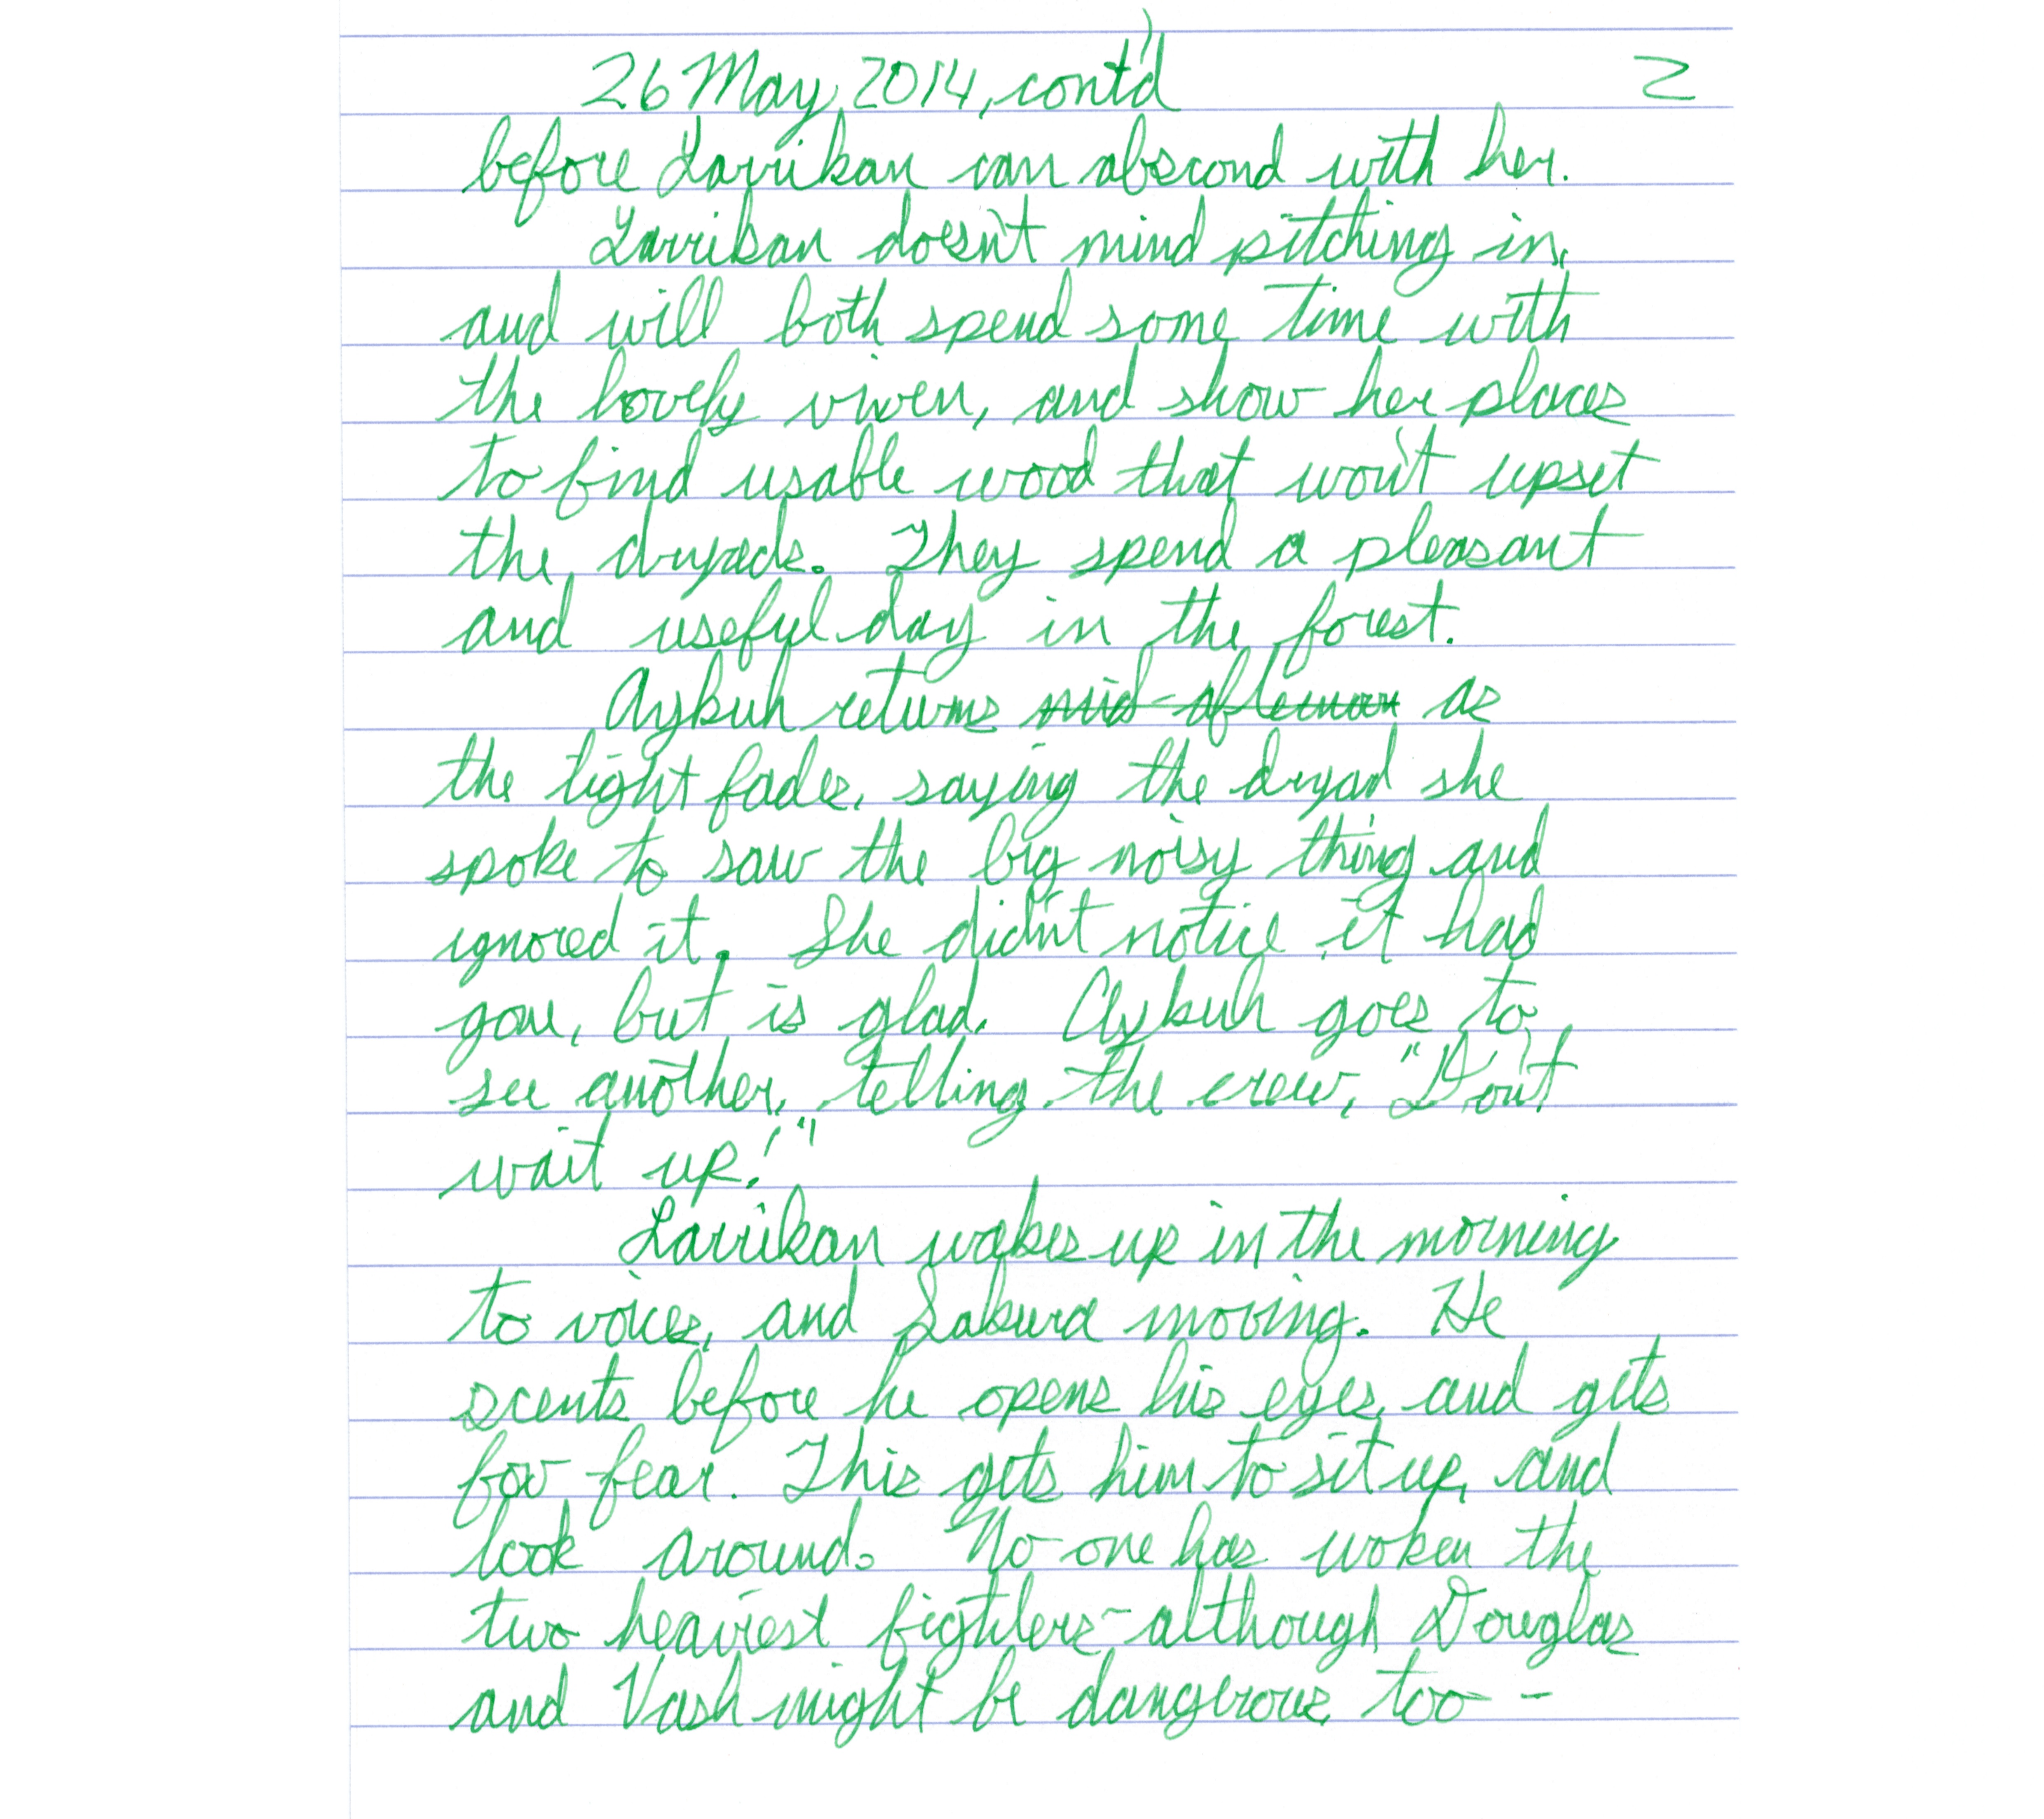 26 May, 2014, cont'd 2
before Larrikan can abscond with her.
Larrikan doesn't mind pitching in,
and will both spend some time with
the lovely vixen, and show her places
to find usable wood that won't upset
the dryads. They spend a pleasant
and useful day in the forest.
Aykuh returns mid-afternoon as
the light fades, saying the dryad she
spoke to saw the big noisy thing and
ignored it. She didn't notice it had
gone, but is glad. Aykuh goes to
see another, telling the crew, "Don't
wait up!"
Larrikan wakes up in the morning
to voices, and Sakura moving. He
scents before he opens his eyes, and gets
fox fear. This gets him to sit up, and
look around. No one has woken the
two heaviest fighters - although Douglas
and Vash might be dangerous too -